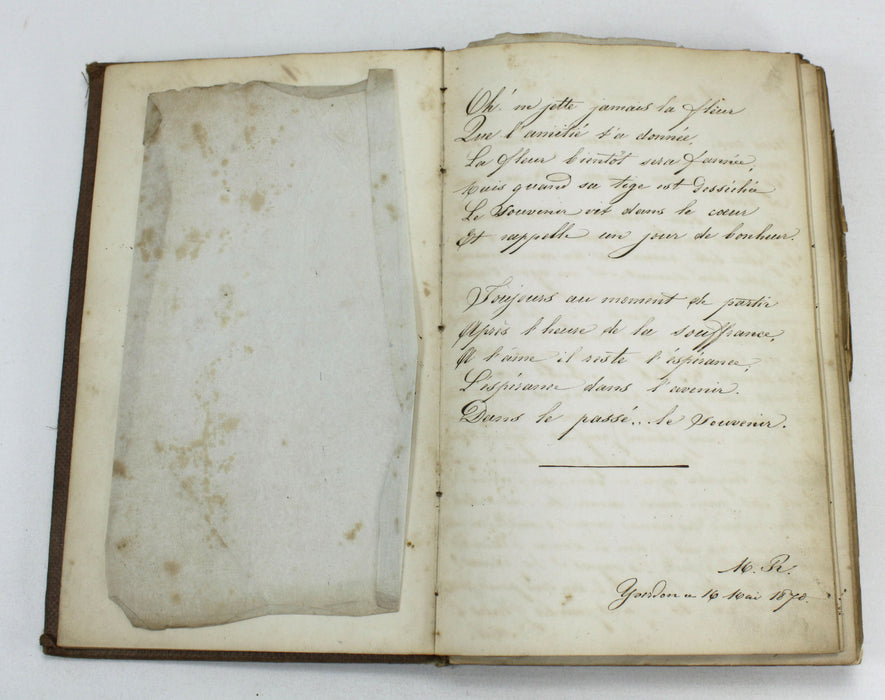 Oh! ne jette jamais la fleur
Que l'amitié t'a donnée,
La fleur bientôt sera fannée,
Mais quand sa tige est desséchée
Le souvenir vit dans le cœur
Et rappelle un jour de bonheur.
Toujours au moment de partir
Après l'heure de la souffrance,
A l'âme il reste l'espérance,
L'espérance dans l'avenir.
Dans le passé... le souvenir.
M. R.
16 Mai 1870.